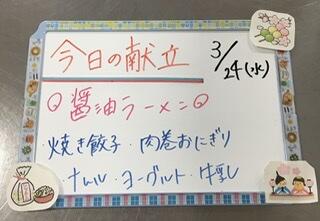 今日の献立
3/24(水)
◎醤油ラーメン◎
・焼き餃子・肉巻おにぎり
・ナムル・ヨーグルト・牛乳